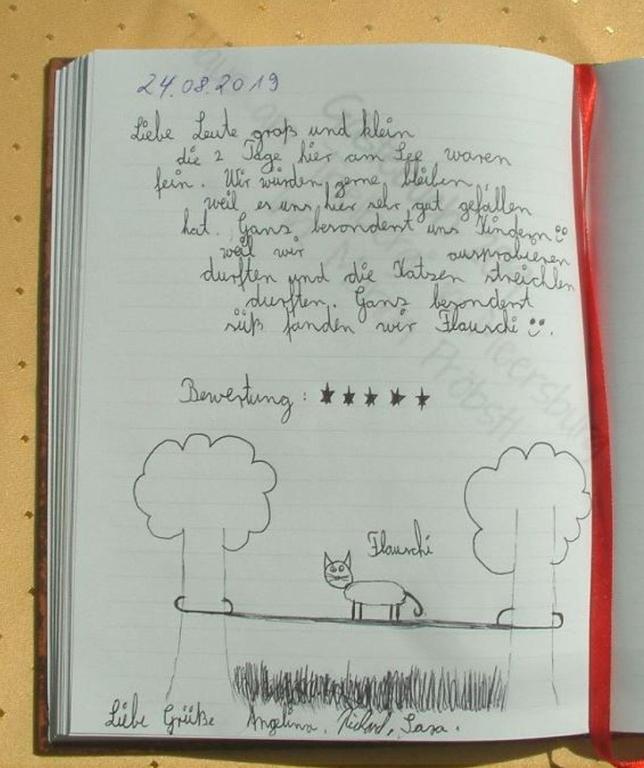 24.08.2019
Liebe Leute groß und klein
die 2 Tage hier am See waren
fein. Wir würden gerne bleiben,
weil es uns hier sehr gut gefallen
hat. Ganz besonderst uns Kindern
weil wir ausprobieren
durften und die Katzen streichlen
durften. Ganz besonderst
süß fanden wir Flauschi.
Bewertung: ★★★★★
Flauschi
Liebe Grüße Angelina, Richard, Sasa.